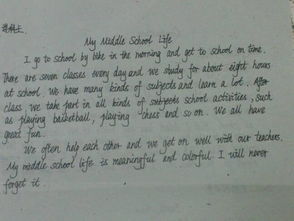 My Middle School Life
I go to school by bike in the morning and get to school on time.
There are seven classes every day and we study for about eight hours
at school. We have many kinds of subjects and learn a lot. After
class, we take part in all kinds of school activities, such
as playing basketball, playing chess and so on. We all have
great fun.
We often help each other and we get on well with our teachers.
My middle school life is meaningful and colorful. I will never
forget it.